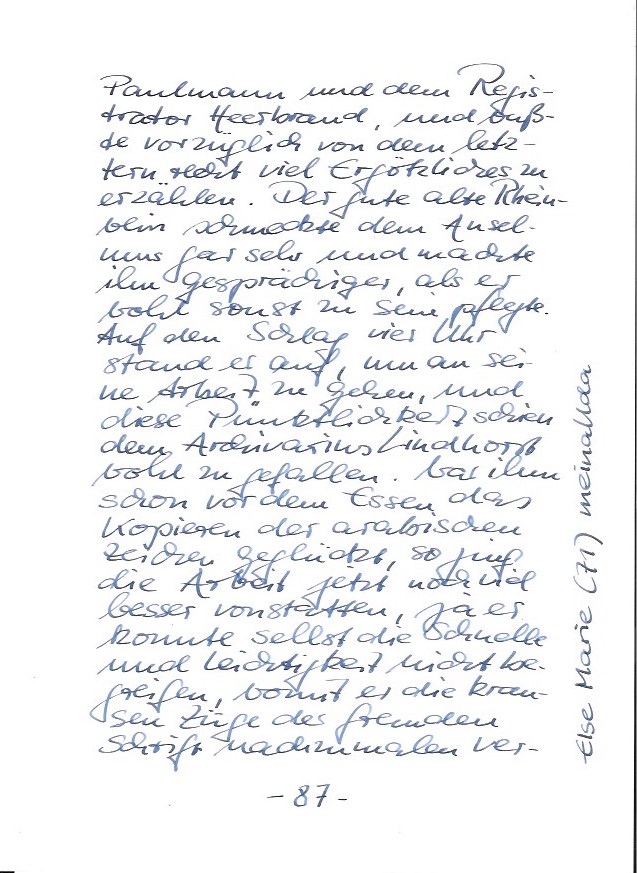 Paulmann und dem Regis-
trator Heerbrand, und wuß-
te vorzüglich von dem letz-
tern recht viel Ergötzliches zu
erzählen. Der gute alte Rhein-
wein schmeckte dem Ansel-
mus gar sehr und machte
ihn gesprächiger, als er
wohl sonst zu sein pflegte.
Auf den Schlag vier Uhr
stand er auf, um an sei-
ne Arbeit zu gehen, und
diese Pünktlichkeit schien
dem Archivarius Lindhorst
wohl zu gefallen. War ihm
schon vor dem Essen das
Kopieren der arabischen
Zeichen geglückt, so ging
die Arbeit jetzt noch viel
besser vonstatten, ja er
konnte selbst die Schnelle
und Leichtigkeit nicht be-
greifen, womit er die krau-
sen Züge der fremden
Schrift nachzumalen ver-
- 87 -
Else Marie (71) meinallda